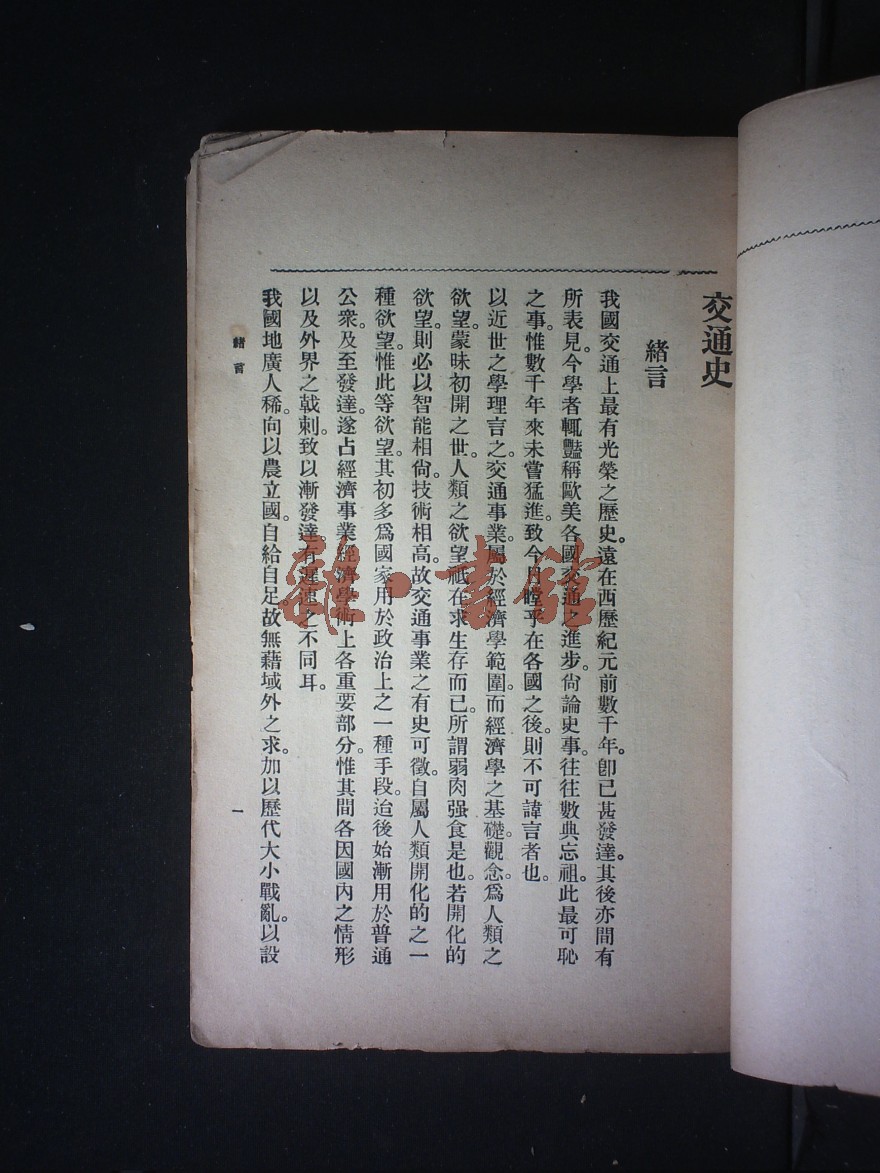 交通史
緒言
我國交通上最有光榮之歷史。遠在西歷紀元前數千年。卽已甚發達。其後亦間有
所表見。今學者輒豔稱歐美各國交通之進步。尙論史事。往往數典忘祖。此最可恥
之事。惟數千年來未嘗猛進。致今日瞠乎在各國之後。則不可諱言者也。
以近世之學理言之。交通事業。屬於經濟學範圍。而經濟學之基礎。觀念。爲人類之
欲望。蒙昧初開之世。人類之欲望。祗在求生存而已。所謂弱肉强食是也。若開化的
欲望。則必以智能相尙。技術相高。故交通事業之有史可徵。自屬人類開化的之一
種欲望。惟此等欲望。其初多爲國家用於政治上之一種手段。迨後始漸用於普通
公衆。及至發達。遂占經濟事業經濟學術上各重要部分。惟其間各因國內之情形
以及外界之戟刺。致以漸發達有遲速之不同耳。
我國地廣人稀。向以農立國。自給自足。故無藉域外之求。加以歷代大小戰亂。以設
緒言
一
雜·書館